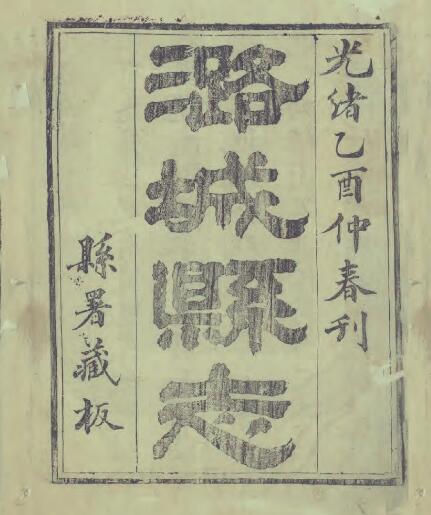 光绪乙酉仲春刊
潞城縣志
縣署藏板